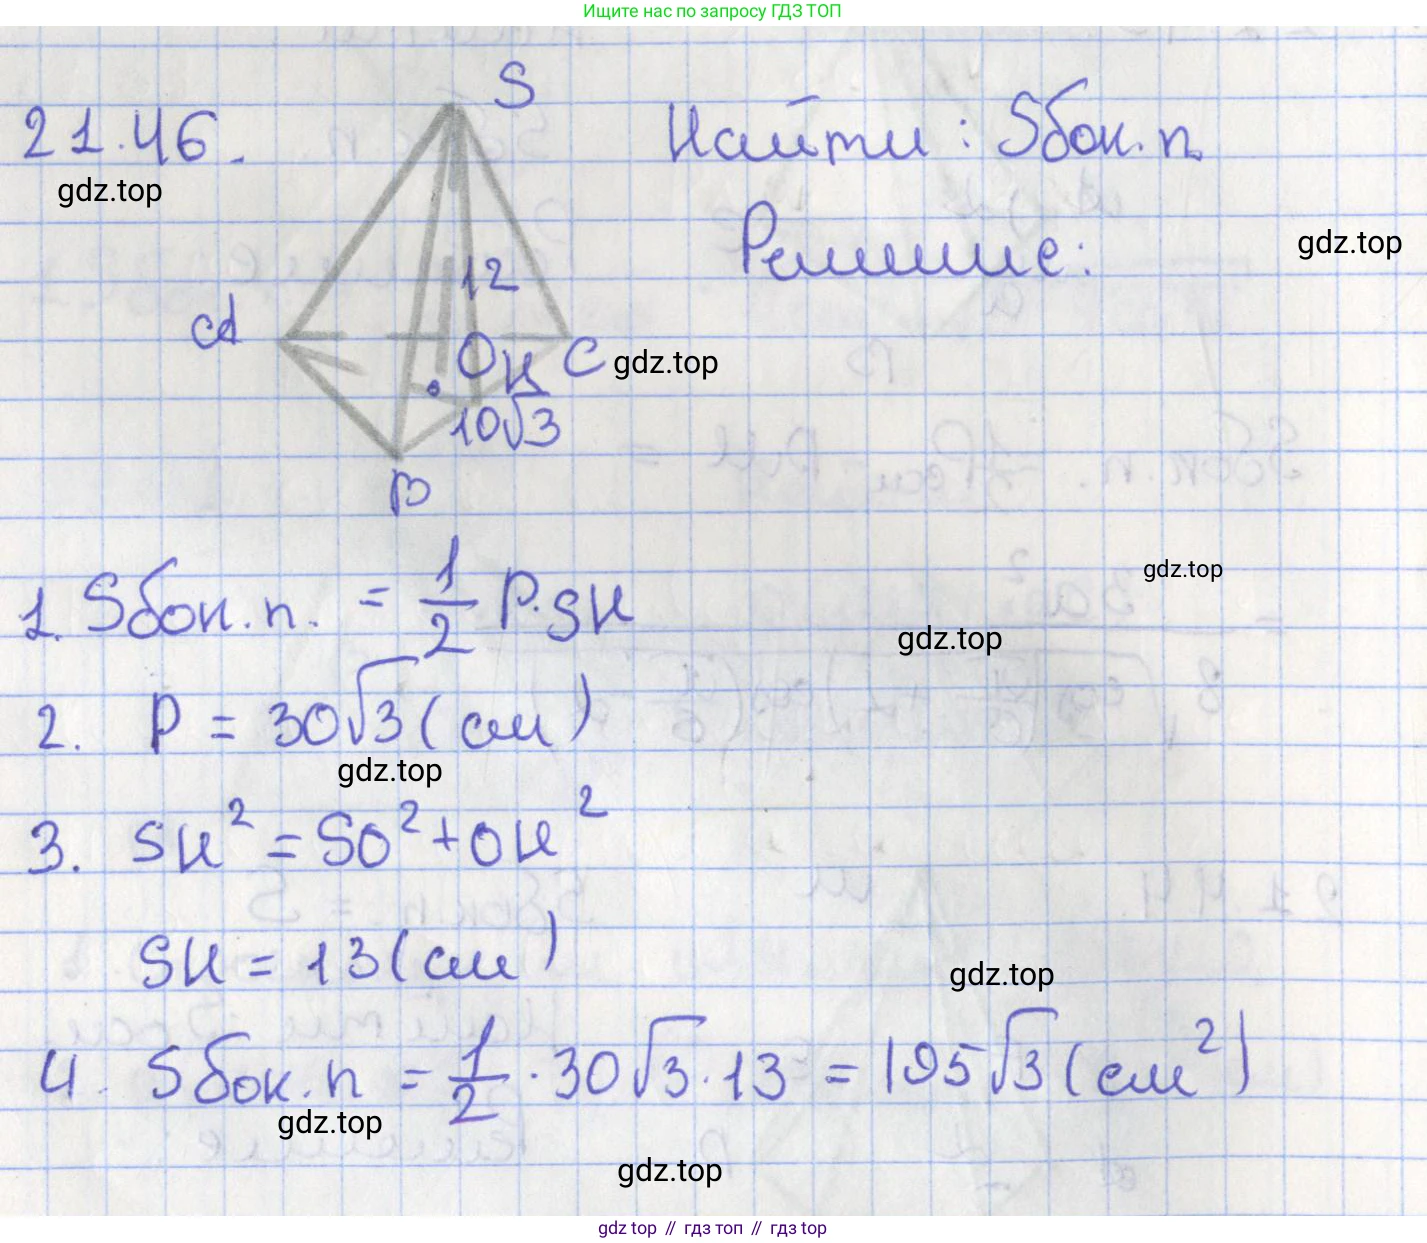 Ищите нас по запросу ГДЗ ТОП
S
21.46.
Найти: Sбок.п.
gdz.top
Решение:
gdz.top
12
A
O H C
gdz.top
10√3
B
gdz.top
1. Sбок.п. = 1/2 P·SH
gdz.top
2. P = 30√3 (см)
gdz.top
3. SH² = SO² + OH²
SH = 13 (см)
gdz.top
4. Sбок.п = 1/2 · 30√3 · 13 = 195√3 (см²)
gdz.top
gdz.top
gdz top // гдз топ // gdz top